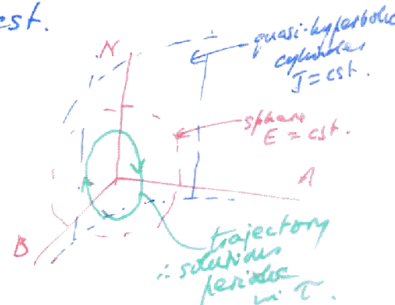 cst.
N
quasi-hyperbolic
cylinder
J = cst.
sphere
E = cst.
A
B
trajectory
∴ solutions
periodic
in τ.